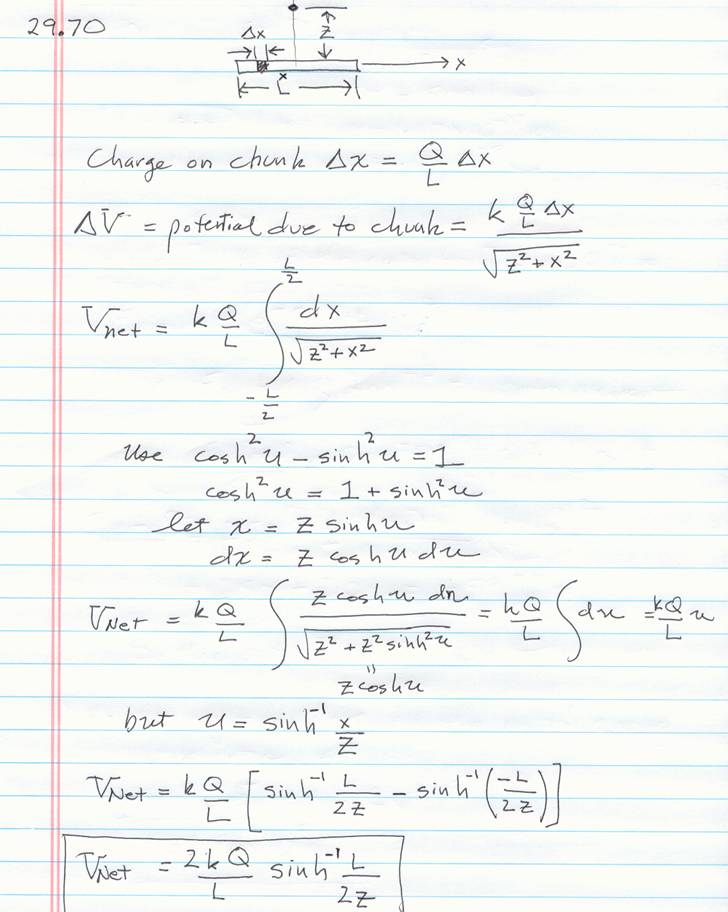 29.70
Δx
z
x
x
L
Charge on chunk Δx = Q/L Δx
ΔV = potential due to chunk = k Q/L Δx / √(z² + x²)
V_net = k Q/L ∫_{-L/2}^{L/2} dx / √(z² + x²)
Use cosh²u − sinh²u = 1
cosh²u = 1 + sinh²u
let x = z sinh u
dx = z cosh u du
V_Net = k Q/L ∫ z cosh u du / √(z² + z² sinh²u) = kQ/L ∫ du = kQ/L u
"
z cosh u
but u = sinh⁻¹ x/z
V_Net = k Q/L [ sinh⁻¹ L/2z − sinh⁻¹ (−L/2z) ]
V_Net = 2kQ/L sinh⁻¹ L/2z